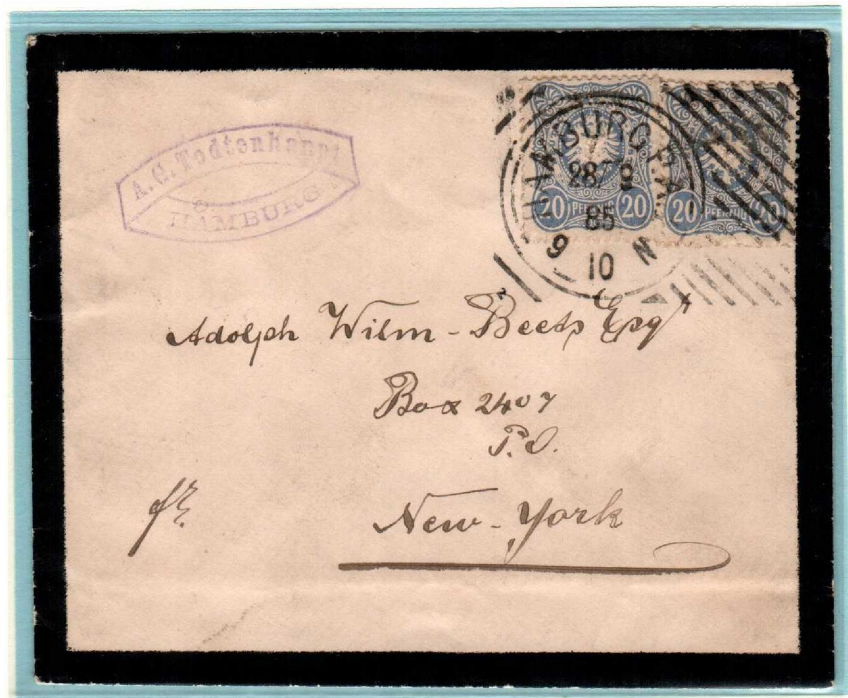 A. C. Todtenhaupt
HAMBURG
HAMBURG P.A.
28 9
85
9 10 N
20 PFENNIG 20
20 PFENNIG 20
Adolph Wilm-Beets Esqr
Box 2407
P.O.
New-York
fr.